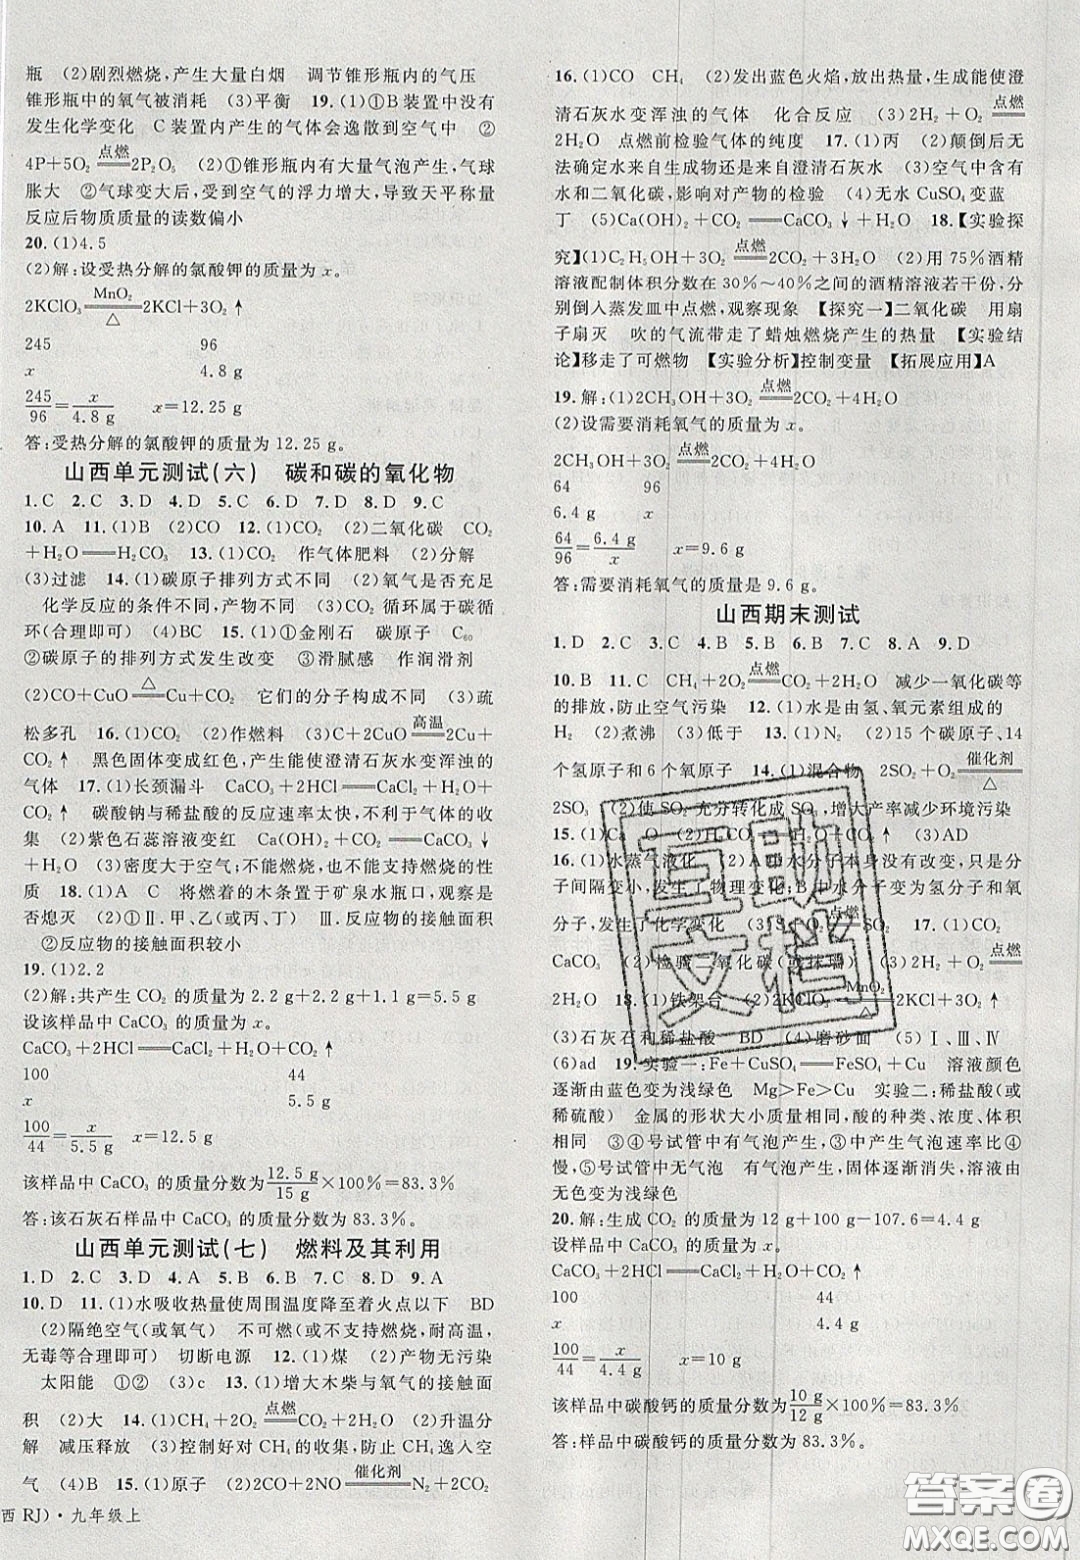 瓶 (2)剧烈燃烧,产生大量白烟 调节锥形瓶内的气压
锥形瓶中的氧气被消耗 (3)平衡 19.(1)①B装置中没有
发生化学变化 C装置内产生的气体会逸散到空气中 ②
4P+5O₂ 点燃══ 2P₂O₅ (2)①锥形瓶内有大量气泡产生,气球
胀大 ②气球变大后,受到空气的浮力增大,导致天平称量
反应后物质质量的读数偏小
20.(1)4.5
(2)解:设受热分解的氯酸钾的质量为x。
2KClO₃ MnO₂══△ 2KCl+3O₂↑
245 96
x 4.8 g
245/96=x/4.8 g x=12.25 g
答:受热分解的氯酸钾的质量为12.25 g。
山西单元测试(六) 碳和碳的氧化物
1.C 2.C 3.D 4.D 5.C 6.D 7.D 8.D 9.C
10.A 11.(1)B (2)CO 12.(1)CO₂ (2)二氧化碳 CO₂
+H₂O══H₂CO₃ 13.(1)CO₂ 作气体肥料 (2)分解
(3)过滤 14.(1)碳原子排列方式不同 (2)氧气是否充足
化学反应的条件不同,产物不同 (3)CO₂ 循环属于碳循
环(合理即可) (4)BC 15.(1)①金刚石 碳原子 C₆₀
②碳原子的排列方式发生改变 ③滑腻感 作润滑剂
(2)CO+CuO △══ Cu+CO₂ 它们的分子构成不同 (3)疏
松多孔 16.(1)CO₂ (2)作燃料 (3)C+2CuO 高温══ 2Cu+
CO₂↑ 黑色固体变成红色,产生能使澄清石灰水变浑浊的
气体 17.(1)长颈漏斗 CaCO₃+2HCl══CaCl₂+H₂O+
CO₂↑ 碳酸钠与稀盐酸的反应速率太快,不利于气体的收
集 (2)紫色石蕊溶液变红 Ca(OH)₂+CO₂══CaCO₃↓
+H₂O (3)密度大于空气;不能燃烧,也不能支持燃烧的性
质 18.(1)A C 将燃着的木条置于矿泉水瓶口,观察是
否熄灭 (2)①Ⅱ.甲、乙(或丙、丁) Ⅲ.反应物的接触面积
②反应物的接触面积较小
19.(1)2.2
(2)解:共产生CO₂的质量为2.2 g+3.3 g=5.5 g
设该样品中CaCO₃的质量为x。
CaCO₃+2HCl══CaCl₂+H₂O+CO₂↑
100 44
x 5.5 g
100/44=x/5.5 g x=12.5 g
该样品中CaCO₃的质量分数为12.5 g/15 g×100%=83.3%
答:该石灰石样品中CaCO₃的质量分数为83.3%。
山西单元测试(七) 燃料及其利用
1.D 2.C 3.D 4.C 5.B 6.B 7.C 8.D 9.A
10.D 11.(1)水吸收热量使周围温度降至着火点以下 BD
(2)隔绝空气(或氧气) 不可燃(或不支持燃烧,耐高温,
无毒等合理即可) 切断电源 12.(1)煤 (2)产物无污染
太阳能 ①② (3)c 13.(1)增大木柴与氧气的接触面
积 (2)大 14.(1)CH₄+2O₂ 点燃══ CO₂+2H₂O (2)升温分
解 减压释放 (3)控制好对CH₄的收集,防止CH₄逸入空
气 (4)B 15.(1)原子 (2)2CO+2NO 催化剂══ N₂+2CO₂
西 RJ)·九年级上
16.(1)CO CH₄ (2)发出蓝色火焰,放出热量,生成能使澄
清石灰水变浑浊的气体 化合反应 (3)2H₂+O₂ 点燃══
2H₂O 点燃前检验气体的纯度 17.(1)丙 (2)颠倒后无
法确定水来自生成物还是来自澄清石灰水 (3)空气中含有
水和二氧化碳,影响对产物的检验 (4)无水CuSO₄变蓝
丁 (5)Ca(OH)₂+CO₂══CaCO₃↓+H₂O 18.【实验探
究】(1)C₂H₅OH+3O₂ 点燃══ 2CO₂+3H₂O (2)用75%酒精
溶液配制体积分数在30%~40%之间的酒精溶液,并分
别倒入蒸发皿中点燃,观察现象 【探究一】二氧化碳 用扇
子扇灭 吹的气流带走了蜡烛燃烧产生的热量 【实验结
论】移走了可燃物 【实验分析】控制变量 【拓展应用】A
19.解:(1)2CH₃OH+3O₂ 点燃══ 2CO₂+4H₂O
(2)设需要消耗氧气的质量为x。
2CH₃OH+3O₂ 点燃══ 2CO₂+4H₂O
64 96
6.4 g x
64/96=6.4 g/x x=9.6 g
答:需要消耗氧气的质量是9.6 g。
山西期末测试
1.D 2.C 3.C 4.B 5.B 6.B 7.C 8.A 9.D
10.B 11.C CH₄+2O₂ 点燃══ CO₂+2H₂O 减少一氧化碳等
的排放,防止空气污染 12.(1)水是由氢、氧元素组成的
H₂ (2)煮沸 (3)低于 13.(1)N₂ (2)15个碳原子、14
个氢原子和6个氧原子 14.(1)混合物 2SO₂+O₂ 催化剂══△
2SO₃ (2)使SO₂充分转化成SO₃,增大产率减少环境污染
15.(1)CaO (2)H₂CO₃ (3)AD
16.(1)水蒸气液化 (2)A中水分子本身没有改变,只是分
子间隔变小,发生了物理变化;B中水分子变为氢分子和氧
分子,发生了化学变化 (3)S+O₂ 点燃══ SO₂ 17.(1)CO₂
CaCO₃ (2)检验二氧化碳(或抹墙) (3)2H₂+O₂ 点燃══
2H₂O 18.(1)铁架台 (2)2KClO₃ MnO₂══△ 2KCl+3O₂↑
(3)石灰石和稀盐酸 BD (4)磨砂面 (5)Ⅰ、Ⅲ、Ⅳ
(6)ad 19.实验一:Fe+CuSO₄══FeSO₄+Cu 溶液颜色
逐渐由蓝色变为浅绿色 Mg>Fe>Cu 实验二:稀盐酸(或
稀硫酸) 金属的形状大小质量相同,酸的种类、浓度、体积
相同 ③④号试管中有气泡产生,③中产生气泡速率比④
慢,⑤号试管中无气泡 有气泡产生,固体逐渐消失,溶液由
无色变为浅绿色
20.解:生成CO₂的质量为12 g+100 g-107.6=4.4 g
设样品中CaCO₃的质量为x。
CaCO₃+2HCl══CaCl₂+H₂O+CO₂↑
100 44
x 4.4 g
100/44=x/4.4 g x=10 g
该样品中碳酸钙的质量分数为10 g/12 g×100%=83.3%
答:样品中碳酸钙的质量分数为83.3%。
互助
文档
答案圈
MXQE.COM